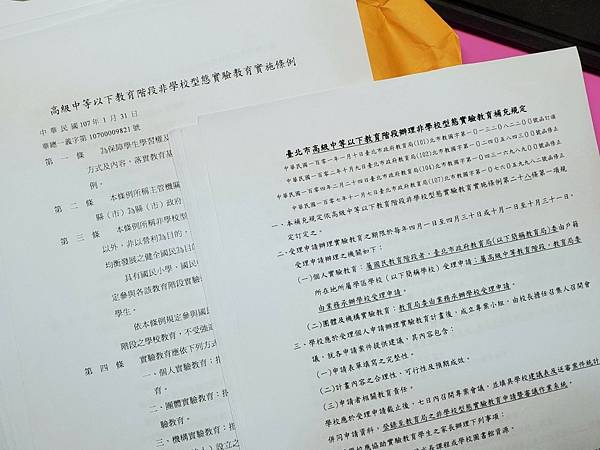 高級中等以下教育階段非學校型態實驗教育實施條例
中華民國107年1月31日
華總一義字第10700009821號
第一條 為保障學生學習權及
方式及內容,落實教育基
例。
第二條 本條例所稱主管機關
縣(市)為縣(市)政府
第三條 本條例所稱非學校型
以外,非以營利為目的,
均衡發展之健全國民為目
具有國民小學、國民
定參與各該教育階段實驗
學生。
依本條例規定參與國
階段之學校教育,不受強迫
第四條 實驗教育應依下列方式
一、個人實驗教育:指
育。
二、團體實驗教育:指
育。
三、機構實驗教育:指
人)設立之
臺北市高級中等以下教育階段辦理非學校型態實驗教育補充規定
中華民國一百零一年一月十日臺北市政府教育局(101)北市教國字第一○一三二○八二二○○號函訂頒
中華民國一百零二年十月九日臺北市政府教育局(102)北市教國字第一○二四○五四○三○○號函修正
中華民國一百零四年二月二十四日臺北市政府教育局(104)北市教國字第一○四三一六九八九○○號函修正
中華民國一百零七年十一月七日臺北市政府教育局(107)北市教國字第一○七六○五九八二○號函修正
一、本補充規定依高級中等以下教育階段非學校型態實驗教育實施條例第二十八條第一項規
定訂定之。
二、受理申請辦理實驗教育之期限於每年四月一日至四月三十日或十月一日至十月三十一日,
受理申請辦理之機關如下:
(一)個人實驗教育:屬國民教育階段者,臺北市政府教育局(以下簡稱教育局)委由戶籍
所在地所屬學區學校(以下簡稱學校)受理申請;屬高級中等教育階段,教育局委
由業務承辦學校受理申請。
(二)團體及機構實驗教育:教育局委由業務承辦學校受理申請。
三、學校應於受理個人申請辦理實驗教育計畫後,成立專案小組,由校長擔任召集人召開會
議,就各申請案件提供建議,其內容包含:
(一)申請表單填寫之完整性。
(二)計畫內容之合理性、可行性及預期成效。
(三)申請者相關教育責任。
學校應於受理申請截止後,七日內召開專案會議,並填具學校建議表及送審案件統計
併同申請資料,登錄至教育局之非學校型態實驗教育申請暨審議作業系統。
學校應協助實驗教育學生之家長辦理下列事項:
長課程或學校圖書館資源。